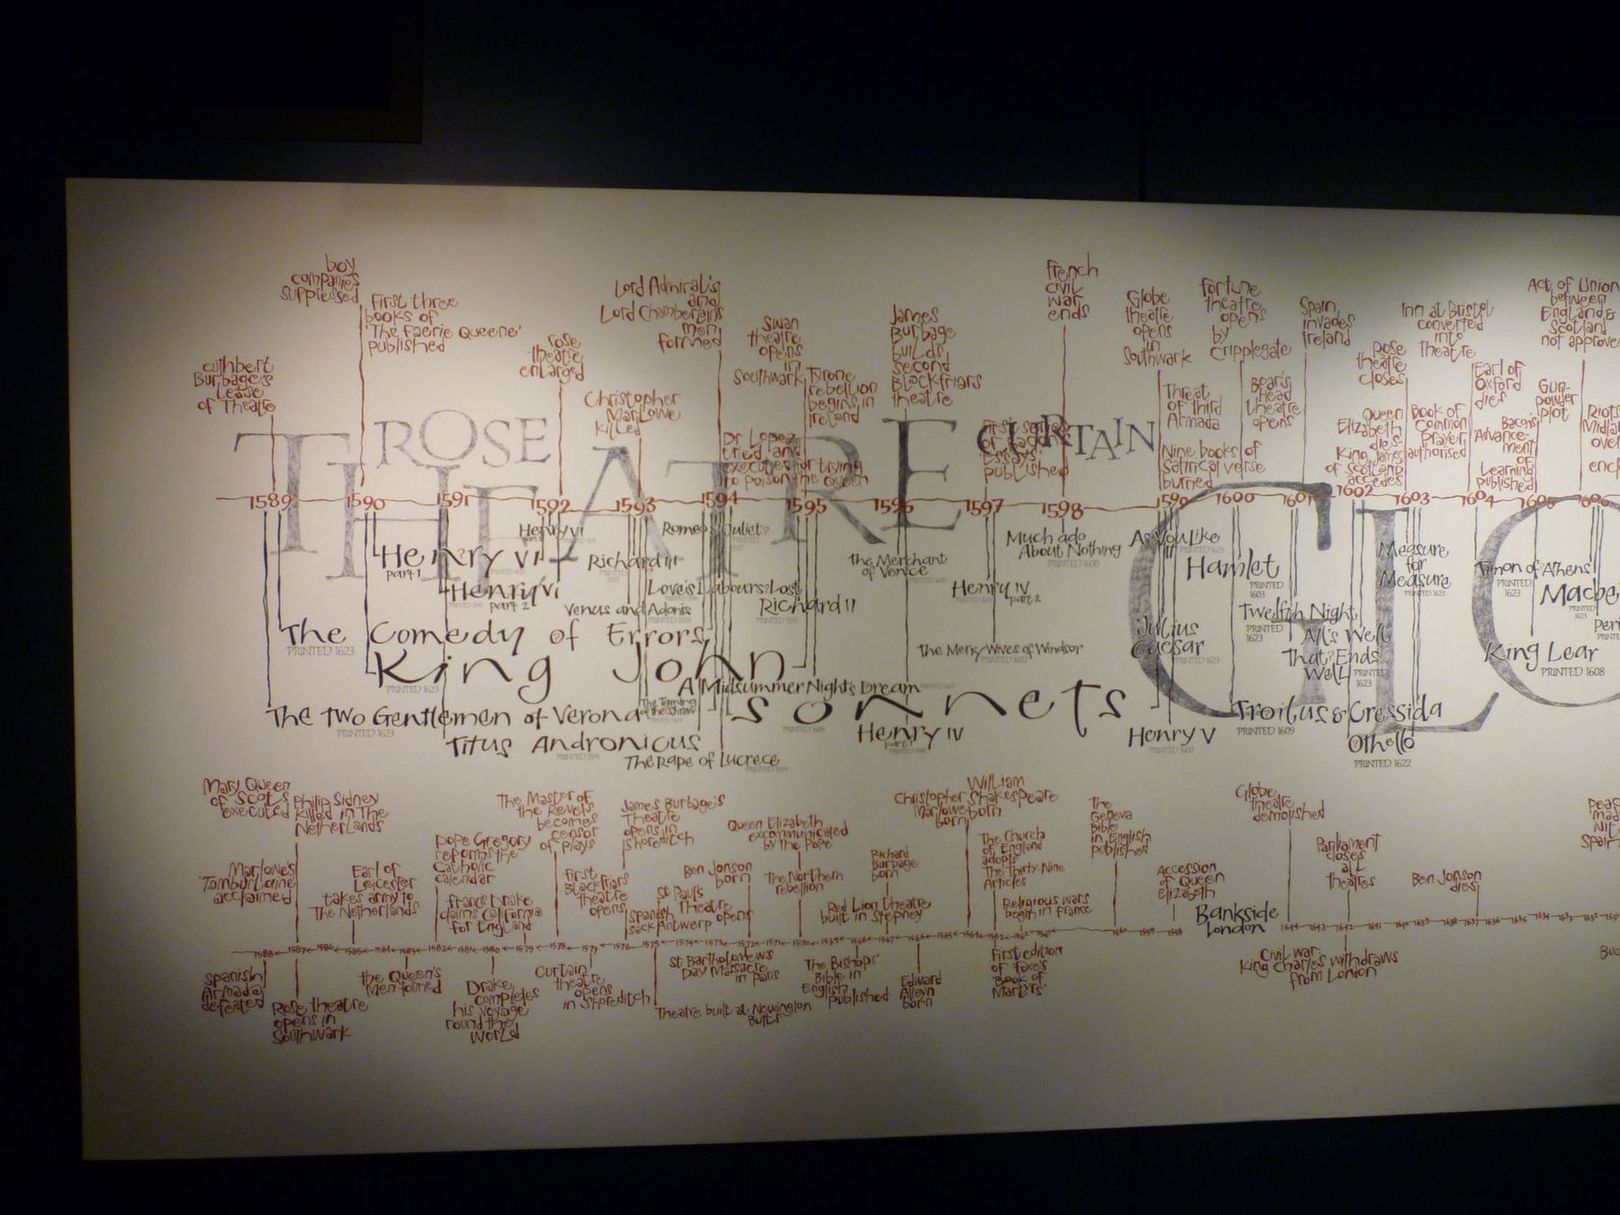 boy
companies
suppressed
First three
books of
'The Faerie Queene'
published
cuthbert
Burbage's
Lease
of Theatre
rose
theatre
enlarged
Christopher
Marlowe
killed
Lord Admiral's
and
Lord Chamberlain's
men
formed
Swan
theatre
opens
in
Southwark
Tyrone
rebellion
begins in
Ireland
Dr Lopez
tried and
executed for trying
to poison the Queen
James
Burbage
builds
second
Blackfriars
theatre
published
French
civil
war
ends
Globe
theatre
opens
in
Southwark
Threat
of third
Armada
Nine books of
Satirical verse
burned
Fortune
theatre
opens
by
Cripplegate
Boar's
head
theatre
opens
Spain
invades
Ireland
Rose
theatre
closes
Queen
Elizabeth
dies
King James
of Scotland
accedes
Inn at Bristol
converted
into
Theatre
Book of
Common
Prayer
authorised
Earl of
Oxford
dies
Bacon's
'Advance-
ment
of
Learning'
published
Gun-
powder
plot
Act of Union
between
England &
Scotland
not approve
ROSE
THEATRE
CURTAIN
GLO
1589 1590 1591 1592 1593 1594 1595 1596 1597 1598 1599 1600 1601 1602 1603 1604 1605 1606
Henry VI
Romeo & Juliet?
Henry VI
part 1
Richard III
Henry VI
part 2
Love's Labours Lost
Venus and Adonis
Richard II
The Merchant
of Venice
Much ado
About Nothing
Henry IV
part 2
As You Like
It
Hamlet
PRINTED
1603
Measure
for
Measure
PRINTED 1623
Timon of Athens
PRINTED
1623
Macbe
PRINTED
1623
Peri
The Comedy of Errors
PRINTED 1623
King John
PRINTED 1623
The Merry Wives of Windsor
Julius
Caesar
Twelfth Night
PRINTED
1623
All's Well
That Ends
Well
PRINTED
1623
King Lear
PRINTED 1608
A Midsummer Night's Dream
The Taming
of the Shrew
sonnets
The Two Gentlemen of Verona
PRINTED 1623
Titus Andronicus
The Rape of Lucrece
Henry IV
part 1
Henry V
Troilus & Cressida
PRINTED 1609
Othello
PRINTED 1622
Mary Queen
of Scots
executed
Philip Sidney
killed in The
Netherlands
Marlowe's
'Tamburlaine'
acclaimed
Earl of
Leicester
takes army to
The Netherlands
Pope Gregory
reforms the
Catholic
calendar
Francis Drake
claims California
for England
The Master of
the Revels
becomes
censor
of plays
First
Blackfriars
theatre
opens
James Burbage's
Theatre
opens in
Shoreditch
Spanish
sack Antwerp
St Paul's
Theatre
opens
Ben Jonson
born
Queen Elizabeth
excommunicated
by the Pope
The Northern
rebellion
Richard
Burbage
born
Red Lion theatre
built in Stepney
Christopher
Marlowe
born
William
Shakespeare
born
The Church
of England
adopts
The Thirty-Nine
Articles
Religious wars
begin in France
The
Geneva
Bible
in English
published
Accession
of Queen
Elizabeth
Bankside
London
Globe
theatre
demolished
Parliament
closes
all
theatres
Ben Jonson
dies
Spanish
Armada
defeated
Rose theatre
opens in
Southwark
the Queen's
Men formed
Drake
completes
his voyage
round the
World
Curtain
theatre
opens
in Shoreditch
St Bartholomew's
Day Massacre
in Paris
Theatre built at Newington
Butts
The Bishops'
Bible in
English
published
Edward
Alleyn
born
First edition
of Foxe's
'Book of
Martyrs'
Civil war:
King Charles withdraws
from London